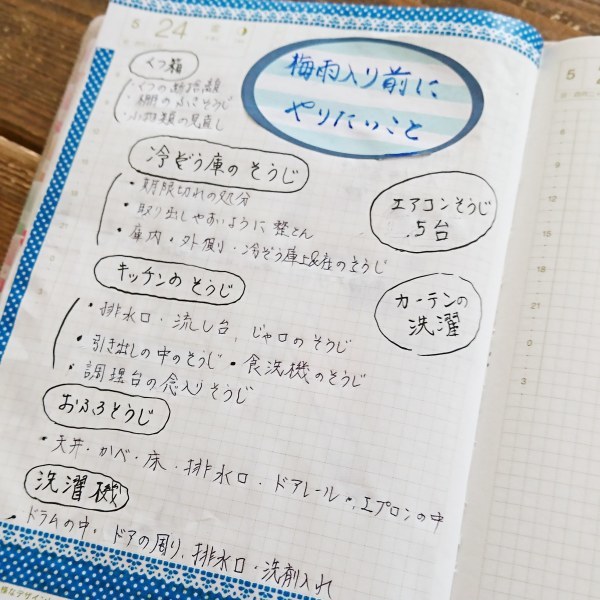 5 24
梅雨入り前に
やりたいこと
くつ箱
・くつの断捨離
・棚のふきそうじ
・小物類の見直し
冷ぞう庫のそうじ
・期限切れの処分
・取り出しやすいように整とん
・庫内・外側・冷ぞう庫上&左のそうじ
エアコンそうじ
5台
キッチンのそうじ
・排水口・流し台、じゃ口のそうじ
・引き出しの中のそうじ・食洗機のそうじ
・調理台の念入りそうじ
カーテンの
洗濯
おふろそうじ
・天井・かべ・床・排水口・ドアレール・エプロンの中
洗濯機
・ドラムの中・ドアの周り、排水口・洗剤入れ
5
12
15
18
21
0
3